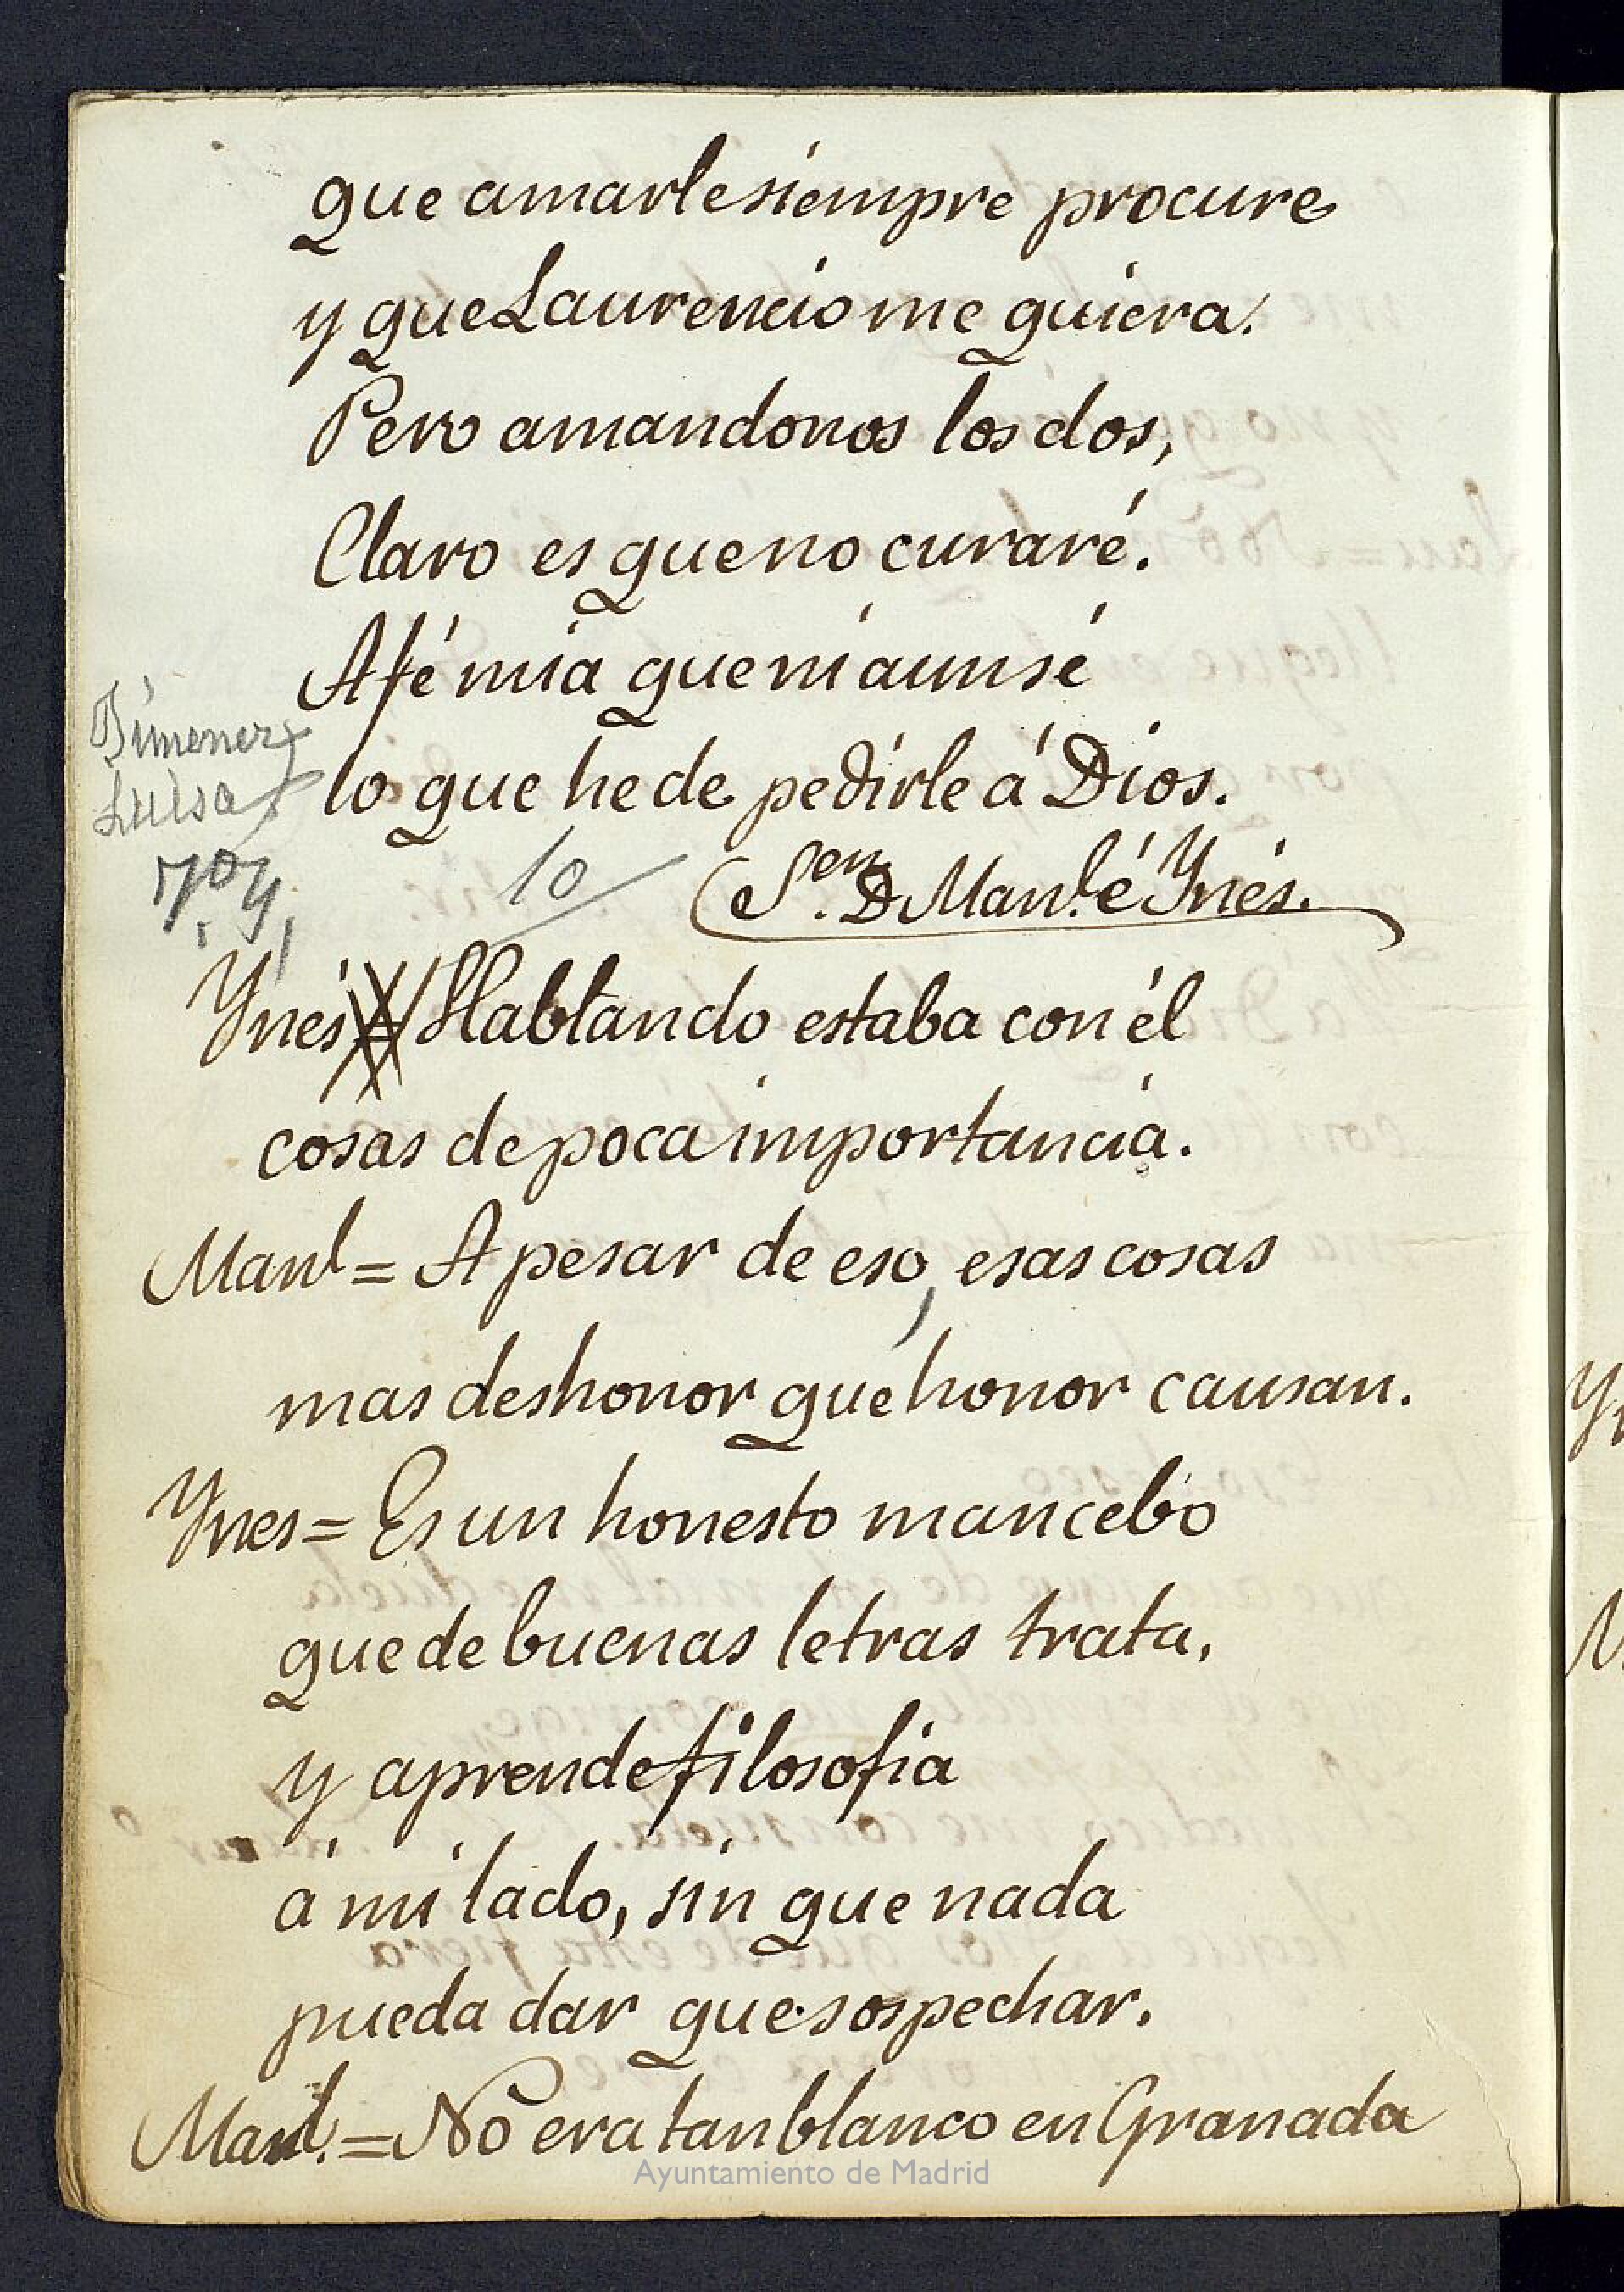 que amarle siempre procure
y que Laurencio me quiera.
Pero amandonos los dos,
Claro es que no curaré.
A fé mia que ni aun sé
Jimenez
lo que he de pedirle á Dios.
Luisa
10
(Sen. D Manl. é Ynés.
Ynés = Hablando estaba con él
cosas de poca importancia.
Manl = A pesar de eso, esas cosas
mas deshonor que honor causan.
Ynes = Es un honesto mancebo
que de buenas letras trata,
y aprende filosofia
á mi lado, sin que nada
pueda dar que sospechar.
Manl. = No era tan blanco en Granada
Ayuntamiento de Madrid